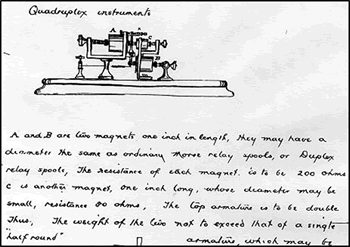 Quadruplex instruments
A B C
A and B are two magnets one inch in length, they may have a
diameter the same as ordinary morse relay spools, or Duplex
relay spools, The resistance of each magnet. is to be 200 ohms
C is another magnet, one inch long, whose diameter may be
small, resistance 80 ohms. The top armature is to be double
Thus, The weight of the two not to exceed that of a single
"half round" armature, which may be